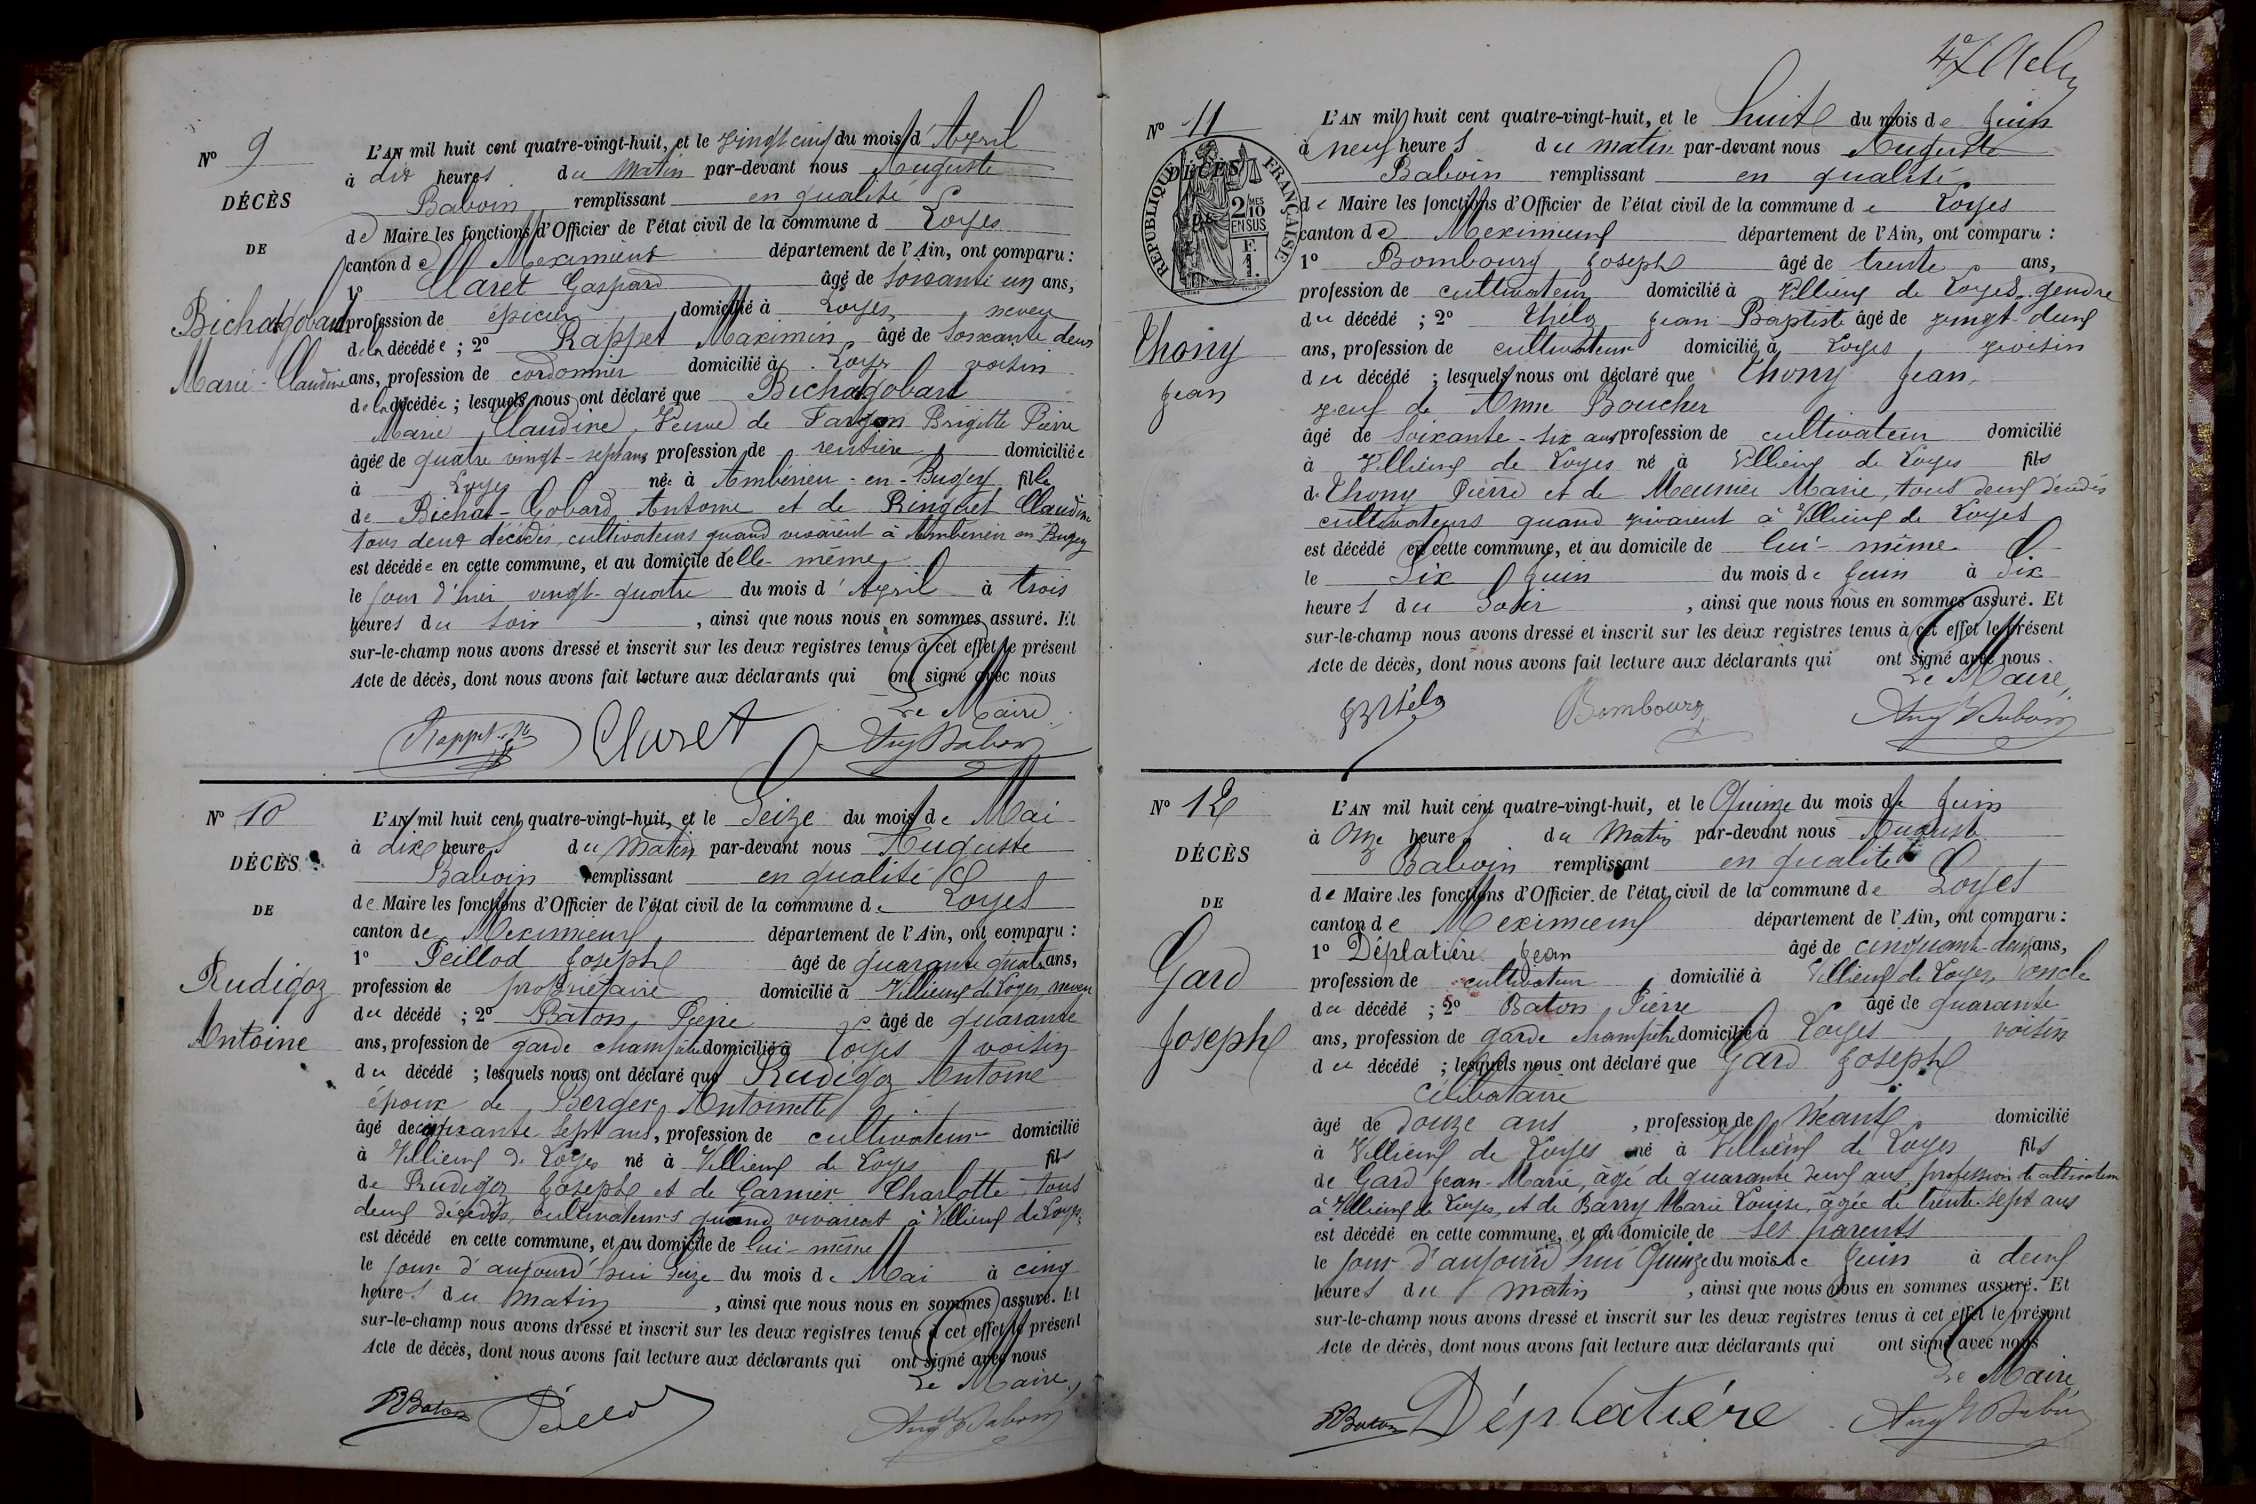 Nº 9
DÉCÈS
DE
Bichatgobard
Marie-Claudine
L'AN mil huit cent quatre-vingt-huit, et le vingt cinq du mois d'Avril
à dix heures du matin par-devant nous Auguste
Baboin remplissant en qualité
de Maire les fonctions d'Officier de l'état civil de la commune d Loyes
canton de Meximieux département de l'Ain, ont comparu :
1º Claret Gaspard âgé de soixante un ans,
profession de épicier domicilié à Loyes, neveu
de la décédée ; 2º Rappet Maximin âgé de soixante deux
ans, profession de cordonnier domicilié à Loyes voisin
de la décédée ; lesquels nous ont déclaré que Bichatgobard
Marie Claudine, Veuve de Fargon Brigitte Pierre
âgée de quatre vingt-sept ans profession de rentière domiciliée
à Loyes née à Ambérieu-en-Bugey fille
de Bichat-Gobard Antoine et de Ringuet Claudine
tous deux décédés, cultivateurs quand vivaient à Ambérieu en Bugey
est décédée en cette commune, et au domicile delle-même
le jour d'hier vingt-quatre du mois d'Avril à trois
heures du soir , ainsi que nous nous en sommes assuré. Et
sur-le-champ nous avons dressé et inscrit sur les deux registres tenus à cet effet le présent
Acte de décès, dont nous avons fait lecture aux déclarants qui ont signé avec nous
Le Maire
Rappet M Claret Aug Baboin
Nº 10
DÉCÈS
DE
Rudigoz
Antoine
L'AN mil huit cent quatre-vingt-huit, et le Seize du mois de Mai
à dix heures du Matin par-devant nous Auguste
Baboin remplissant en qualité
de Maire les fonctions d'Officier de l'état civil de la commune de Loyes
canton de Meximieux département de l'Ain, ont comparu :
1º Peillod Joseph âgé de quarante quatre ans,
profession de propriétaire domicilié à Villieux de Loyes, neveu
du décédé ; 2º Bâton Pierre âgé de quarante
ans, profession de garde champêtre domicilié à Loyes voisin
du décédé ; lesquels nous ont déclaré que Rudigoz Antoine
époux de Berger Antoinette
âgé de soixante sept ans, profession de cultivateur domicilié
à Villieux de Loyes né à Villieux de Loyes fils
de Rudigoz Joseph et de Garnier Charlotte, tous
deux décédés, cultivateurs quand vivaient à Villieux de Loyes
est décédé en cette commune, et au domicile de lui-même
le jour d'aujourd'hui Seize du mois de Mai à cinq
heures du matin , ainsi que nous nous en sommes assuré. Et
sur-le-champ nous avons dressé et inscrit sur les deux registres tenus à cet effet le présent
Acte de décès, dont nous avons fait lecture aux déclarants qui ont signé avec nous
Le Maire,
PBaton Peillod Aug Baboin
Nº 11
DÉCÈS
DE
RÉPUBLIQUE FRANÇAISE
2/10MES EN SUS
F. 1.
Thony
Jean
L'AN mil huit cent quatre-vingt-huit, et le huit du mois de Juin
à neuf heures du matin par-devant nous Auguste
Baboin remplissant en qualité
de Maire les fonctions d'Officier de l'état civil de la commune de Loyes
canton de Meximieux département de l'Ain, ont comparu :
1º Bombourg Joseph âgé de trente ans,
profession de cultivateur domicilié à Villieux de Loyes, gendre
du décédé ; 2º Jean Baptiste âgé de vingt-deux
ans, profession de cultivateur domicilié à Loyes, voisin
du décédé ; lesquels nous ont déclaré que Thony Jean,
veuf de Anne Boucher
âgé de Soixante-six ans profession de cultivateur domicilié
à Villieux de Loyes né à Villieux de Loyes fils
de Thony Pierre et de Meunier Marie, tous deux décédés
cultivateurs quand vivaient à Villieux de Loyes
est décédé en cette commune, et au domicile de lui-même
le Six Juin du mois de Juin à Six
heures du Soir , ainsi que nous nous en sommes assuré. Et
sur-le-champ nous avons dressé et inscrit sur les deux registres tenus à cet effet le présent
Acte de décès, dont nous avons fait lecture aux déclarants qui ont signé avec nous.
Le Maire,
Bombourg Aug Baboin
Nº 12
DÉCÈS
DE
Gard
Joseph
L'AN mil huit cent quatre-vingt-huit, et le Quinze du mois de Juin
à Onze heures du Matin par-devant nous Auguste
Baboin remplissant en qualité
de Maire les fonctions d'Officier de l'état civil de la commune de Loyes
canton de Meximieux département de l'Ain, ont comparu :
1º Déplatière Jean âgé de cinquante-deux ans,
profession de cultivateur domicilié à Villieux de Loyes, oncle
du décédé ; 2º Baton Pierre âgé de quarante
ans, profession de garde champêtre domicilié à Loyes voisin
du décédé ; lesquels nous ont déclaré que Gard Joseph
Célibataire
âgé de douze ans , profession de Néant domicilié
à Villieux de Loyes né à Villieux de Loyes fils
de Gard Jean-Marie, âgé de quarante deux ans, profession de cultivateur
à Villieux de Loyes, et de Barry Marie Louise, âgée de trente-sept ans
est décédé en cette commune, et au domicile de ses parents
le jour d'aujourd'hui Quinze du mois de Juin à deux
heures du matin , ainsi que nous nous en sommes assuré. Et
sur-le-champ nous avons dressé et inscrit sur les deux registres tenus à cet effet le présent
Acte de décès, dont nous avons fait lecture aux déclarants qui ont signé avec nous
Le Maire
PBaton Déplatiére Aug Baboin